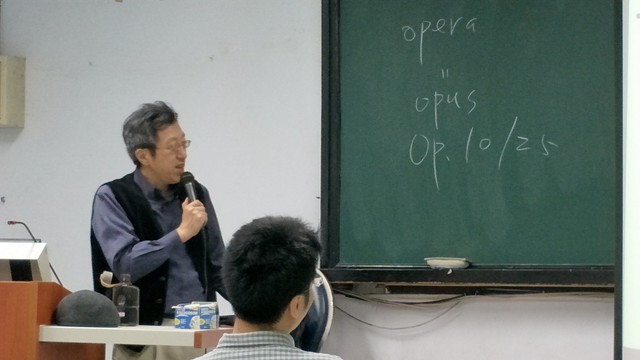 opera
"
opus
Op. 10/25